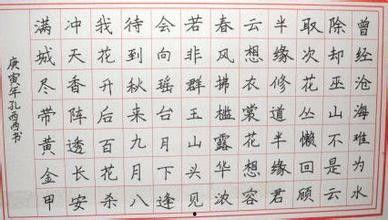 曾经沧海难为水
除却巫山不是云
取次花丛懒回顾
半缘修道半缘君
云想衣裳花想容
春风拂槛露华浓
若非群玉山头见
会向瑶台月下逢
待到秋来九月八
我花开后百花杀
冲天香阵透长安
满城尽带黄金甲
庚寅年孔西西书